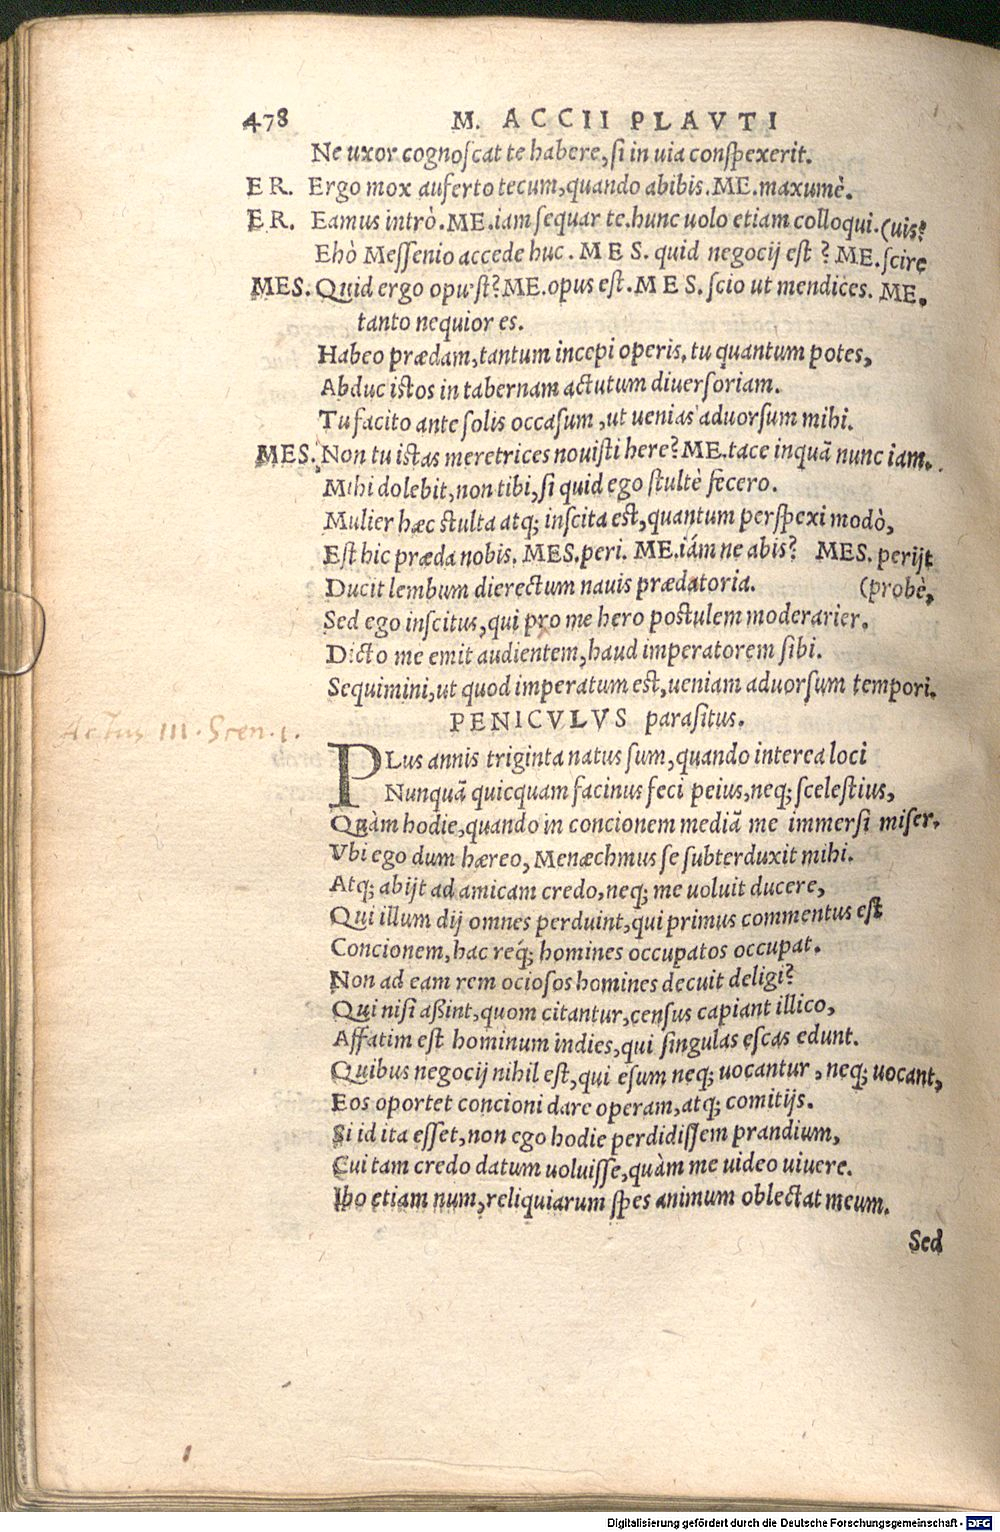 478 M. ACCII PLAVTI
Ne uxor cognoſcat te habere, ſi in uia conſpexerit.
ER. Ergo mox auferto tecum, quando abibis. ME. maxumè.
ER. Eamus intrò. ME. iam ſequar te. hunc uolo etiam colloqui. (uis?
Ehò Meſſenio accede huc. MES. quid negocij est? ME. ſcire
MES. Quid ergo opu'ſt? ME. opus est. MES. ſcio ut mendices. ME.
tanto nequior es.
Habeo prædam, tantum incepi operis, tu quantum potes,
Abduc istos in tabernam actutum diuerſoriam.
Tu facito ante ſolis occaſum, ut uenias aduorſum mihi.
MES. Non tu istas meretrices nouiſti here? ME. tace inquã nunc iam.
Mihi dolebit, non tibi, ſi quid ego ſtultè fecero.
Mulier hæc ſtulta atq; inſcita est, quantum perſpexi modò,
Eſt hic præda nobis. MES. peri. ME. iám ne abis? MES. perijt
Ducit lembum dierectum nauis prædatoria. (probè,
Sed ego inſcitus, qui pro me hero postulem moderarier.
Dicto me emit audientem, haud imperatorem ſibi.
Sequimini, ut quod imperatum est, ueniam aduorſum tempori.
PENICVLVS paraſitus.
Actus III. Scen. 1.
PLus annis triginta natus ſum, quando interea loci
Nunquã quicquam facinus feci peius, neq; ſceleſtius,
Quàm hodie, quando in concionem mediã me immerſi miſer.
Vbi ego dum hæreo, Menæchmus ſe ſubterduxit mihi.
Atq; abijt ad amicam credo, neq; me uoluit ducere,
Qui illum dij omnes perduint, qui primus commentus est
Concionem, hac req́; homines occupatos occupat.
Non ad eam rem ocioſos homines decuit deligi?
Qui niſi aßint, quom citantur, cenſus capiant illico,
Affatim est hominum indies, qui ſingulas eſcas edunt.
Quibus negocij nihil est, qui eſum neq; uocantur, neq; uocant,
Eos oportet concioni dare operam, atq; comitijs.
Si id ita eſſet, non ego hodie perdidiſſem prandium,
Cui tam credo datum uoluiſſe, quàm me uideo uiuere.
Ibo etiam num, reliquiarum ſpes animum oblectat meum.
Sed
Digitalisierung gefördert durch die Deutsche Forschungsgemeinschaft - DFG